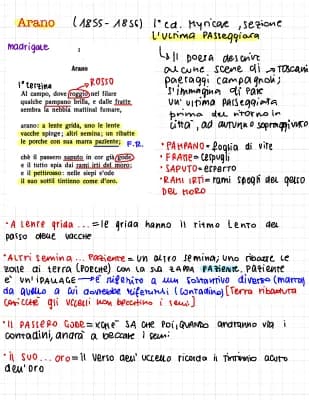 Arano (1885-1886) 1° ed. Myricae, sezione
L'ultima passeggiata
madrigale
↳ Il poeta descrive
alcune scene di → toscani
paesaggi campagnoli;
s'immagina di fare
un'ultima passeggiata
prima del ritorno in
città, ad autunno sopraggiunto
Arano
1° terzina
ROSSO
Al campo, dove roggio nel filare
qualche pampano brilla, e dalle fratte
sembra la nebbia mattinal fumare,
arano: a lente grida, uno le lente
vacche spinge; altri semina; un ribatte
le porche con sua marra paziente;
F.R.
ché il passero saputo in cor già gode,
e il tutto spia dai rami irti del moro;
e il pettirosso: nelle siepi s'ode
il suo sottil tintinno come d'oro.
• PAMPANO = foglia di vite
• FRATTE = cespugli
• SAPUTO = esperto
• RAMI IRTI = rami spogli del gelso
DEL MORO
• A lente grida ... = le grida hanno il ritmo lento del
passo delle vacche
• Altri semina ... paziente = un altro semina; uno ribatte le
zolle di terra (porche) con la sua zappa paziente. Paziente
è un'ipallage → è riferito a un sostantivo diverso (marra)
da quello a cui dovrebbe riferirsi (contadino) [Terra ribattuta
cosicché gli uccelli non becchino i semi]
• Il passero gode = xché sa che poi, quando andranno via i
contadini, andrà a beccare i semi
• il suo ... oro = il verso dell'uccello ricorda il tintinnio acuto
dell'oro